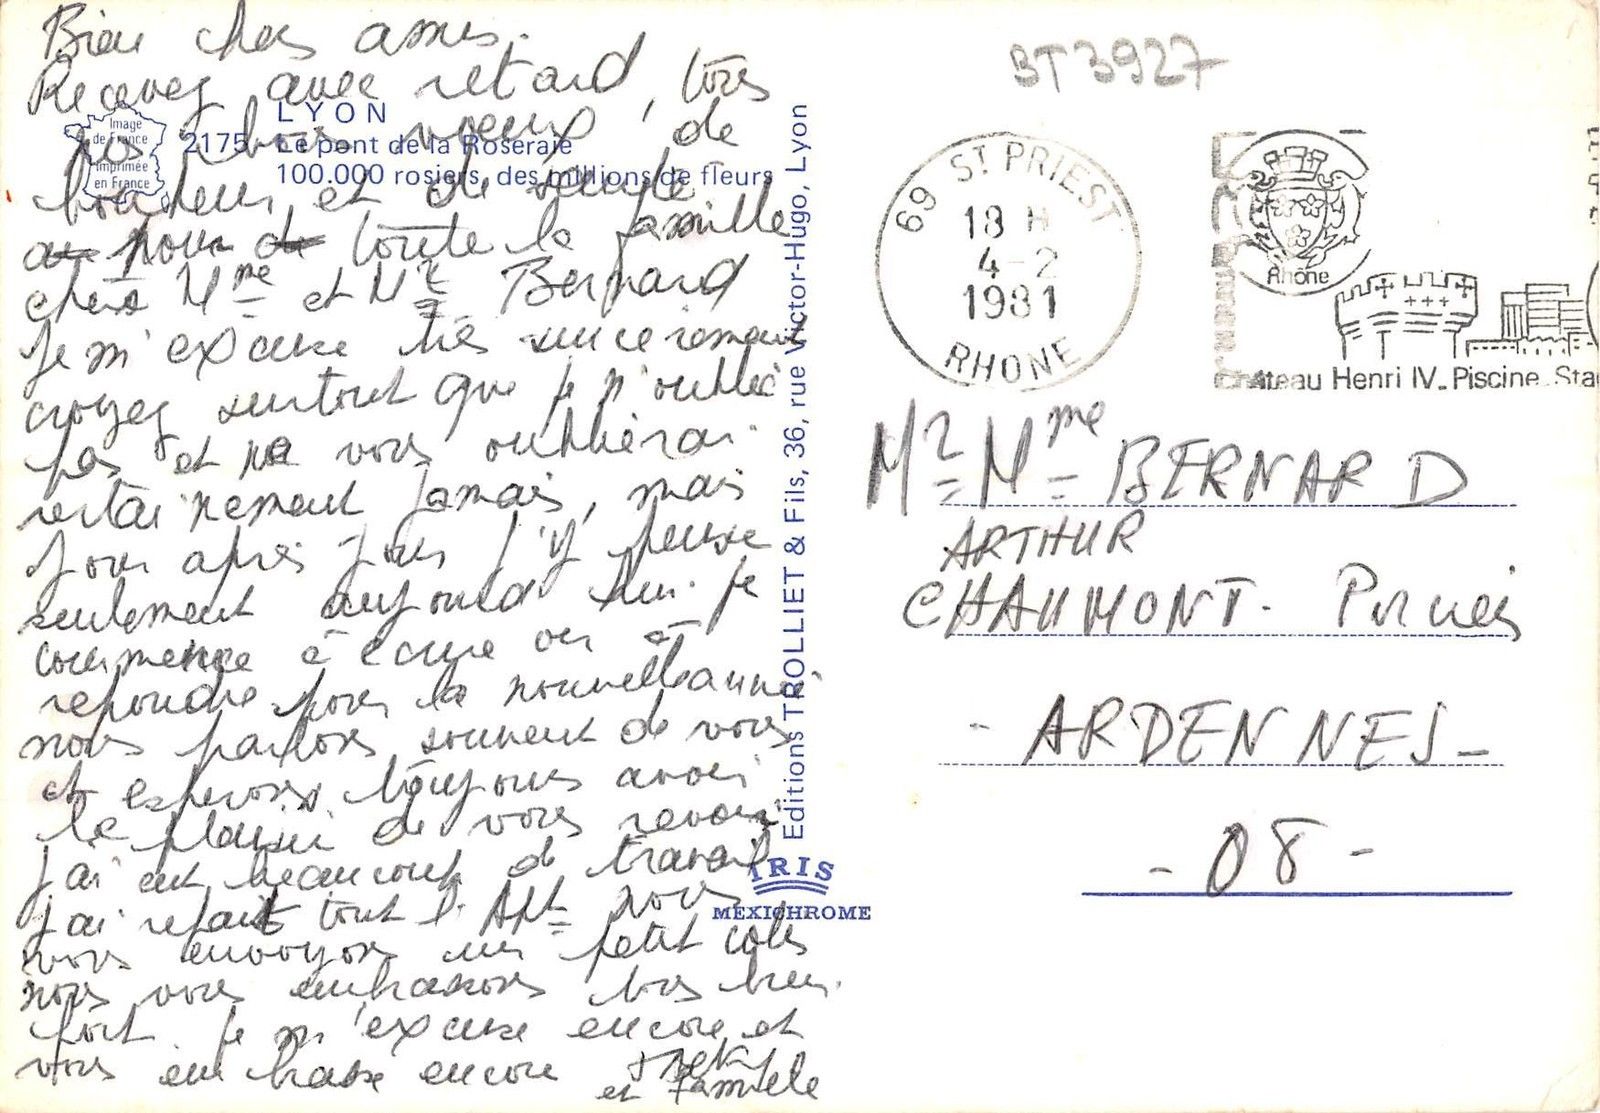 Bien chers amis.
Recevez avec retard, tous
nos bons voeux, de
bonheur et de santé
au pour de toute la famille
chers Mme et Mr Bernard
Je m'excuse très sincèrement
croyez surtout que je n'oublie
pas et ne vous oublierai
certainement jamais, mais
jour après jour j'y pense
seulement aujourd'hui je
commence à écrire ou à
repondre pour la nouvelle année
nous parlons souvent de vous
et esperons toujours avoir
le plaisir de vous revoir
j'ai eut beaucoup de travail
j'ai refait tout l'Apt nous
vous envoyons un petit colis
nous vous embrassons tous bien
fort je m'excuse encore et
vous embrasse encore
et famille
Image
de France
imprimée
en France
LYON
2175 Le pont de la Roseraie
100.000 rosiers, des millions de fleurs
Editions TROLLIET & Fils, 36, rue Victor-Hugo, Lyon
IRIS
MEXICHROME
BT 3927
69 ST PRIEST
18 H
4-2
1981
RHONE
Rhône
Château Henri IV_Piscine_Sta
Mr Mme BERNARD
ARTHUR
CHAUMONT. Porcien
- ARDENNES -
- 08 -